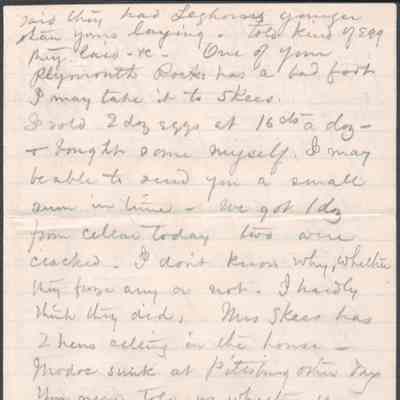 said they had Leghorns younger
than yours laying. - Told kind of egg
they laid - &c - One of your
Plymouth Rocks has a bad foot
I may take it to Skees.
I sold 2 doz eggs at 16 cts a doz -
& bought some myself. I may
be able to send you a small
sum in time - We got 1 doz
from cellar today two were
cracked. I don't know why, whether
they froze any or not. I hardly
think they did. Mrs Skees has
2 hens setting in the house -
Modoc sunk at Pittsburg other day
told us whether